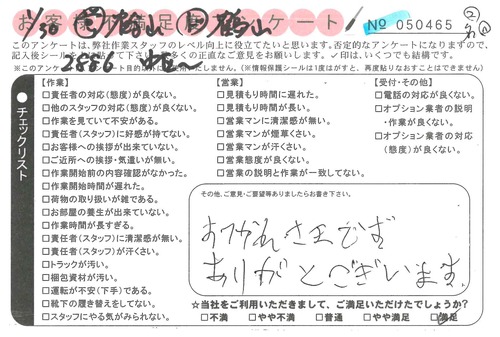 お客様不満足度アンケート
№ 050465
1/30
このアンケートは、弊社作業スタッフのレベル向上に役立てたいと思います。否定的なアンケートになりますので、
記入後シールを
多くの正直なご意見をお願いします。✓印は、いくつでも結構です。
2886
【作業】
□責任者の対応(態度)が良くない。
□他のスタッフの対応(態度)が良くない。
□作業を見ていて不安がある。
□責任者(スタッフ)に好感が持てない。
□お客様への挨拶が出来ていない。
□ご近所への挨拶・気遣いが無い。
□作業開始前の内容確認がなかった。
□作業開始時間が遅れた。
□荷物の取り扱いが雑である。
□お部屋の養生が出来ていない。
□作業時間が長すぎる。
□責任者(スタッフ)に清潔感が無い。
□責任者(スタッフ)が汗くさい。
□トラックが汚い。
□梱包資材が汚い。
□運転が不安(下手)である。
□靴下の履き替えをしてない。
□スタッフにやる気がみられない。
【営業】
□見積もり時間に遅れた。
□見積もり時間が長い。
□営業マンに清潔感が無い。
□営業マンが煙草くさい。
□営業マンが汗くさい。
□営業態度が良くない。
□営業の説明と作業が一致してない。
【受付・その他】
□電話の対応が良くない。
□オプション業者の説明
・作業が良くない。
□オプション業者の対応
(態度)が良くない。
●チェックリスト
その他、ご意見・ご要望等ありましたらお書き下さい。
おつかれさまです
ありがとうございます。
☆当社をご利用いただきまして、ご満足いただけたでしょうか?
□不満 □やや不満 □普通 □やや満足 □満足